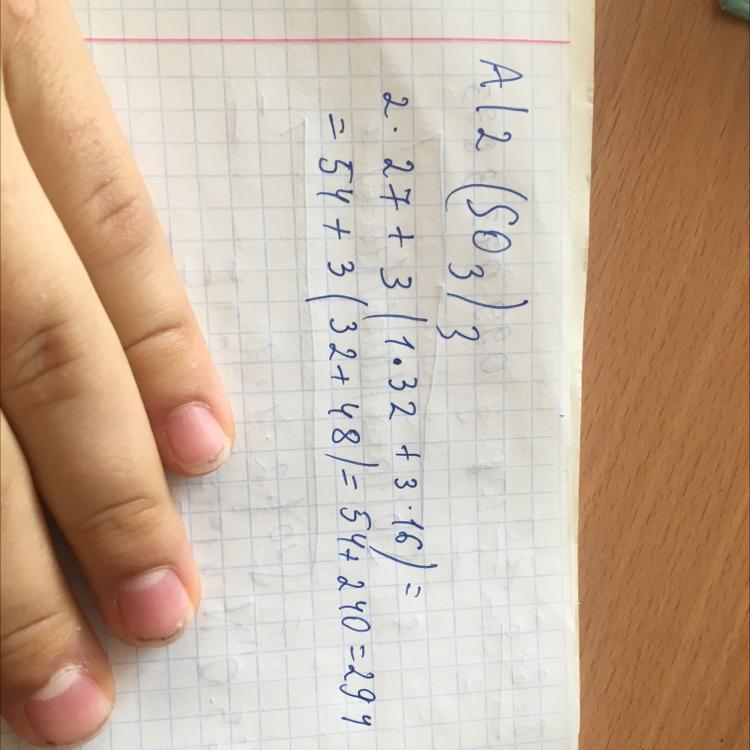 Al2(SO3)3
2·27+3(1·32+3·16)=
=54+3(32+48)=54+240=294